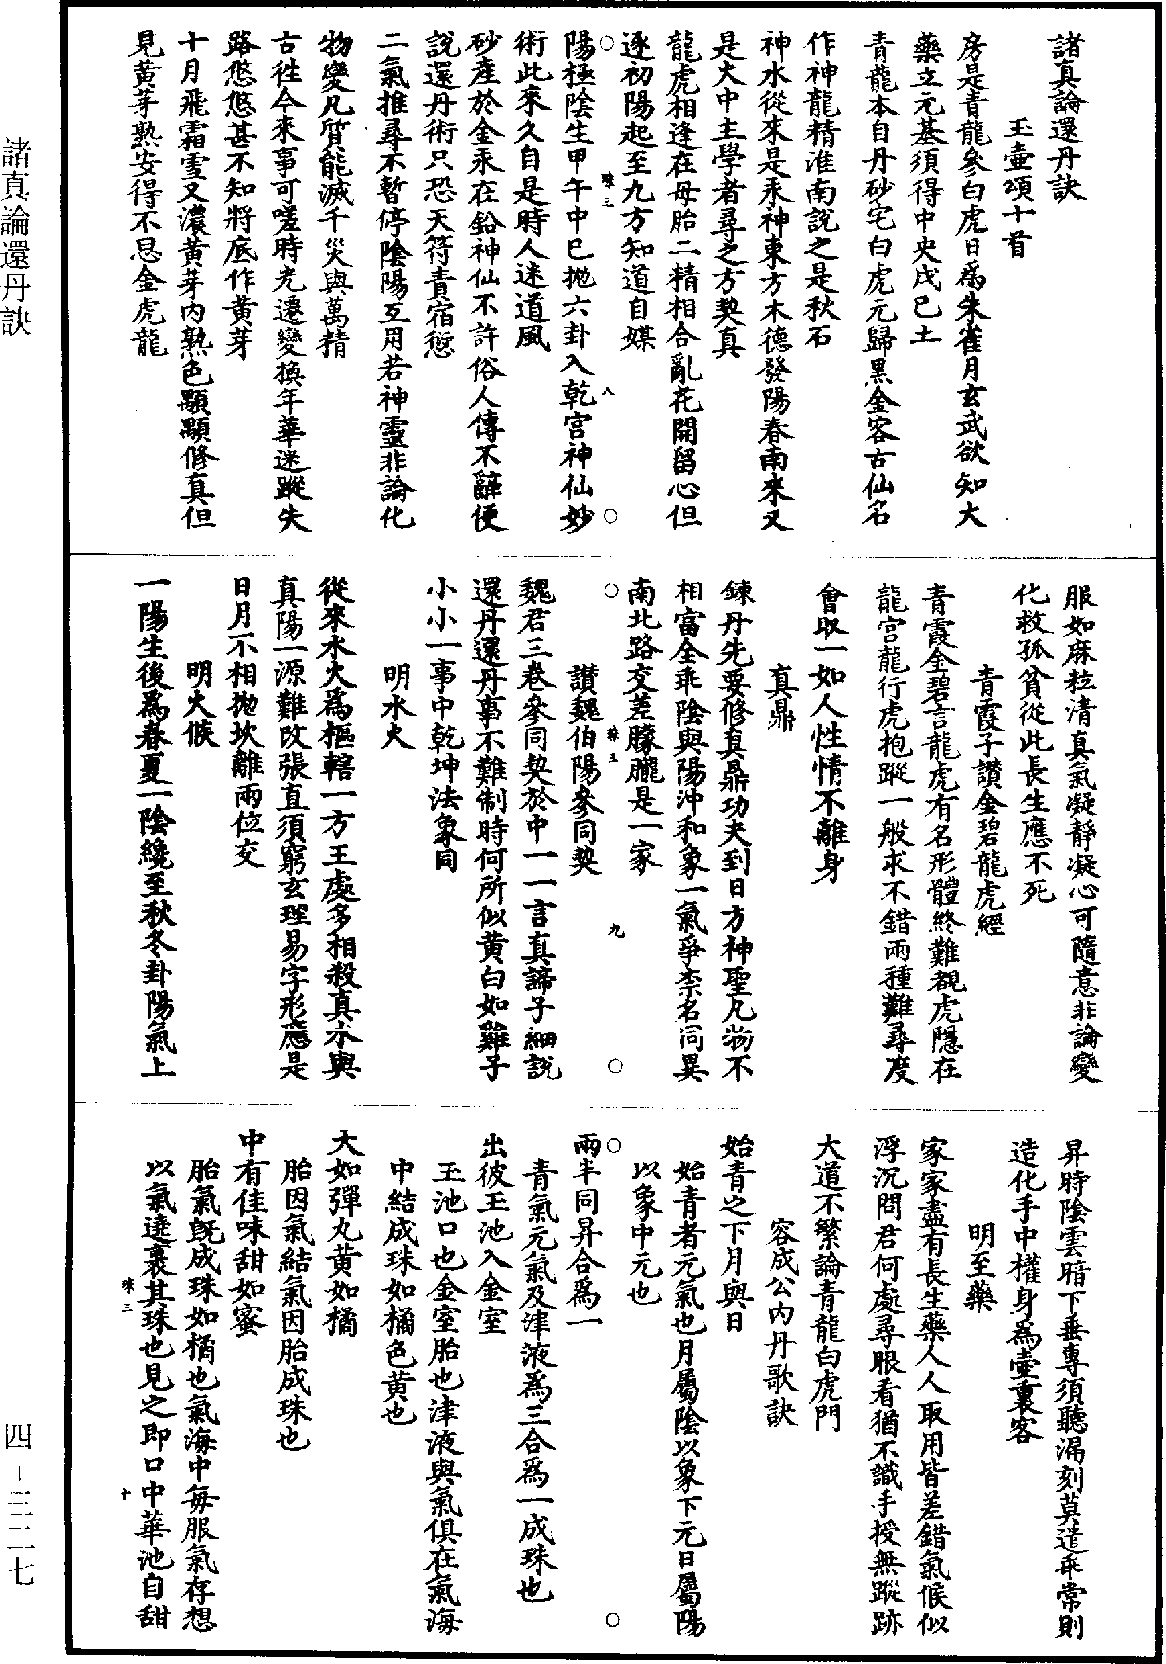 諸真論還丹訣
玉壺頌十首
房是青龍參白虎日為朱雀月玄武欲知大
藥立元基須得中央戊巳土
青龍本自丹砂宅白虎元歸黑金客古仙名
作神龍精淮南說之是秋石
神水從來是汞神東方木德發陽春南來又
是大中主學者尋之方契真
龍虎相逢在母胎二精相合亂花開留心但
逐初陽起至九方知道自媒
陽極陰生甲午中巳拋六卦入乾宮神仙妙
術此來久自是時人迷道風
砂產於金汞在鉛神仙不許俗人傳不辭便
說還丹術只恐天符責宿愆
二氣推尋不暫停陰陽互用若神靈非論化
物變凡質能滅千災與萬精
古徃今來事可嗟時光遷變換年華迷蹤失
路悠悠甚不知將底作黃芽
十月飛霜雪又濃黃芽內熟色顒顒修真但
見黃芽熟安得不思金虎龍
服如麻粒清真氣凝靜凝心可隨意非論變
化救孤貧從此長生應不死
青霞子讚金碧龍虎經
青霞金碧言龍虎有名形體終難覩虎隱在
龍宮龍行虎抱蹤一般求不錯兩種難尋度
會取一如人性情不離身
真鼎
鍊丹先要修真鼎功夫到日方神聖凡物不
相富全乖陰與陽沖和象一氣爭柰名同異
南北路交差朦朧是一家
讚魏伯陽參同契
魏君三卷參同契於中一一言真諦子細說
還丹還丹事不難制時何所似黃白如雞子
小小一事中乾坤法象同
明水火
從來水火為樞轄一方王處多相殺真水與
真陽一源難改張直須窮玄理易字形應是
日月不相拋坎離兩位交
明火候
一陽生後為春夏一陰纔至秋冬卦陽氣上
昇時陰雲暗下垂專須聽漏刻莫遣乖常則
造化手中權身為壺裏客
明至藥
家家盡有長生藥人人取用皆差錯氣候似
浮沉問君何處尋眼看猶不識手授無蹤跡
大道不繁論青龍白虎門
容成公內丹歌訣
始青之下月與日
始青者元氣也月屬陰以象下元日屬陽
以象中元也
兩半同昇合為一
青氣元氣及津液為三合為一成珠也
出彼玉池入金室
玉池口也金室胎也津液與氣俱在氣海
中結成珠如橘色黃也
大如彈丸黃如橘
胎因氣結氣因胎成珠也
中有佳味甜如蜜
胎氣既成珠如橘也氣海中每服氣存想
以氣遶裹其珠也見之即口中華池自甜
諸真論還丹訣
四－三二七